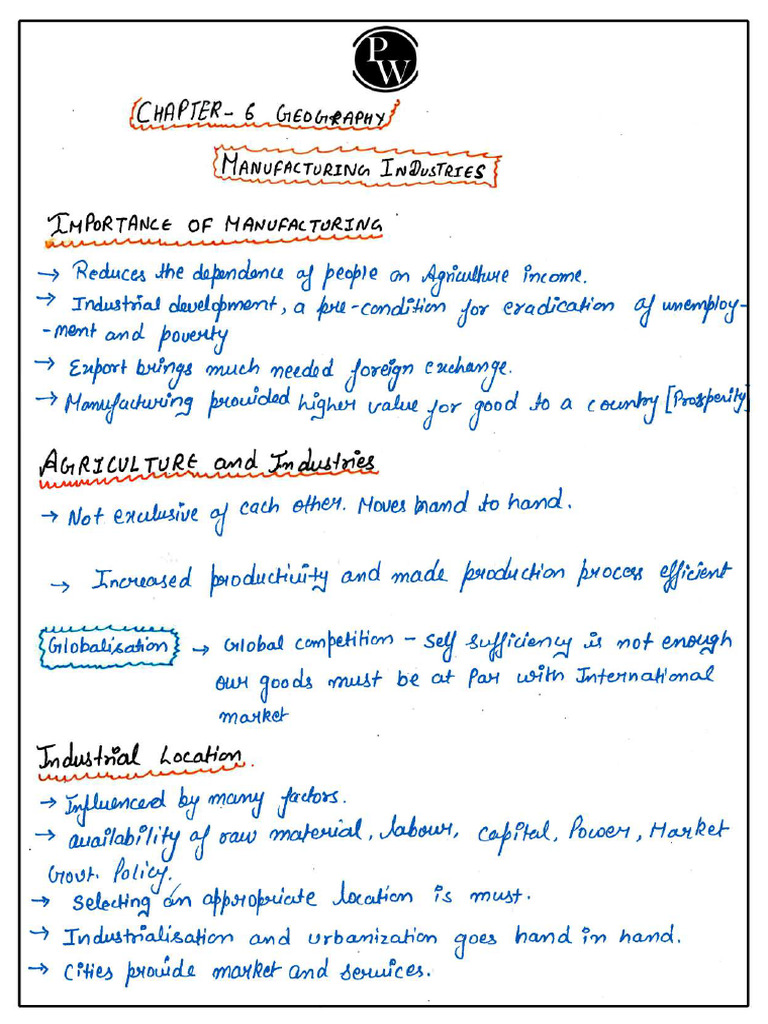 PW
CHAPTER- 6 GEOGRAPHY
MANUFACTURING INDUSTRIES
IMPORTANCE OF MANUFACTURING
→ Reduces the dependence of people on Agriculture income.
→ Industrial development, a pre-condition for eradication of unemploy-
-ment and poverty
→ Export brings much needed foreign exchange.
→ Manufacturing provided higher value for good to a country [Prosperity]
AGRICULTURE and Industries
→ Not exclusive of each other. Moves hand to hand.
→ Increased productivity and made production process efficient
Globalisation → Global competition - Self sufficiency is not enough
our goods must be at Par with International
market
Industrial Location.
→ Influenced by many factors.
→ availability of raw material, labour, capital, Power, Market
Govt. Policy.
→ Selecting an appropriate location is must.
→ Industrialisation and urbanization goes hand in hand.
→ Cities provide market and services.